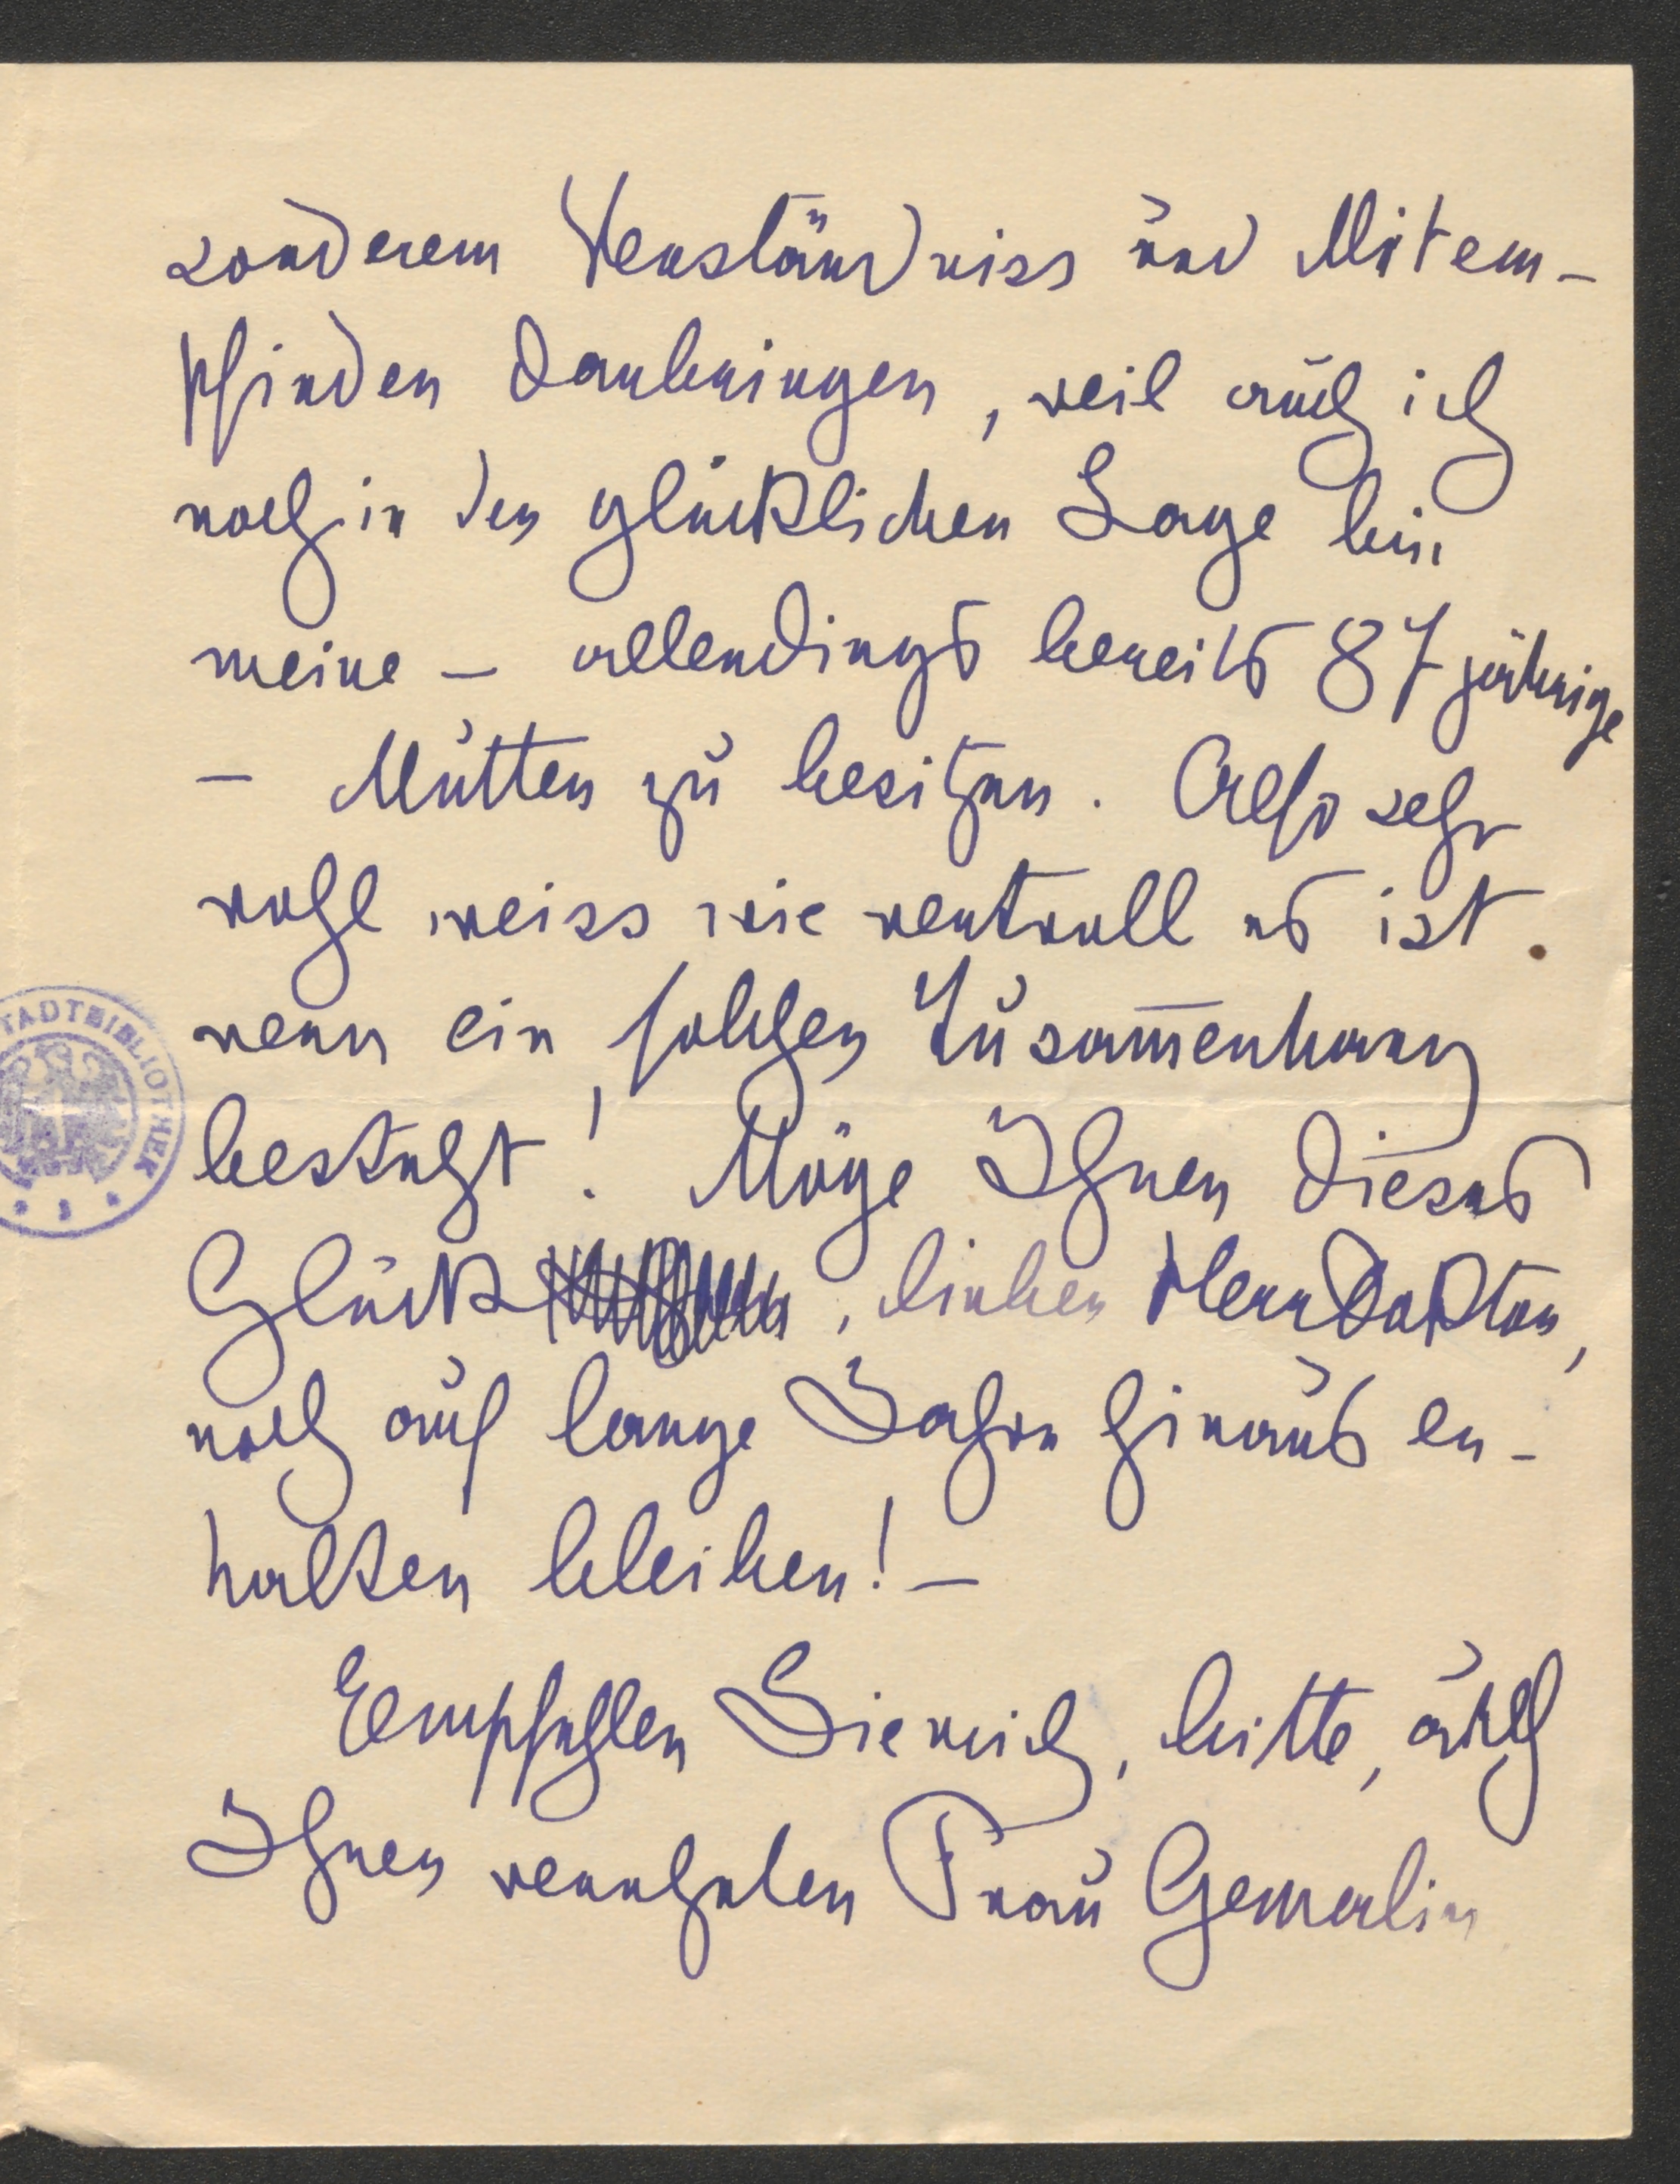 sonderem Verständniss und Mitem-
pfinden darbringen, weil auch ich
noch in der glücklichen Lage bin
meine – allerdings bereits 87 jährige
– Mutter zu besitzen. Also sehr
wohl weiss wie wertvoll es ist
wenn ein solcher Zusam̅enhang
besteht! Möge Ihnen dieses
Glück, lieber Herr Doktor,
noch auf lange Jahre hinaus er-
halten bleiben! –
Empfehlen Sie mich, bitte, auch
Ihrer verehrten Frau Gemalin
STADTBIBLIOTHEK